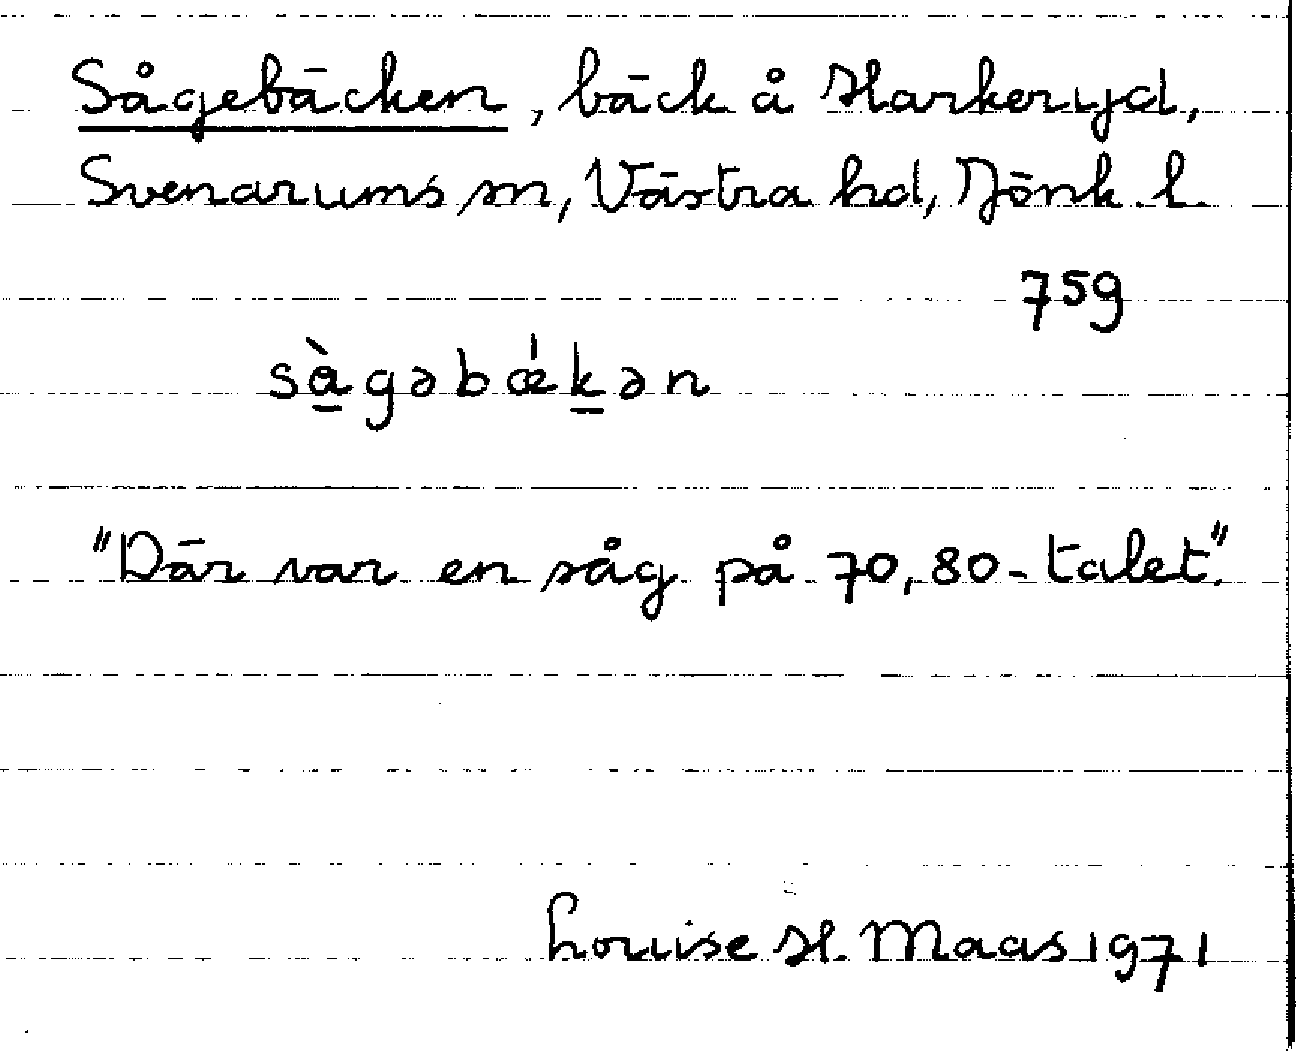 Sågebäcken, bäck å Harkeryd,
Svenarums sn, Västra hd, Jönk. l.
759
sàgəbǽkən
"Där var en såg på 70, 80-talet".
Louise H. Maas 1971